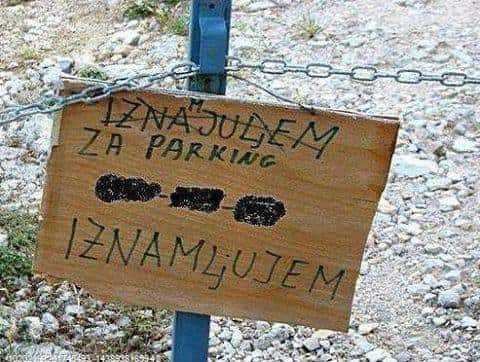 M
IZNAJULjEM
ZA PARKING
IZNAMLjUJEM